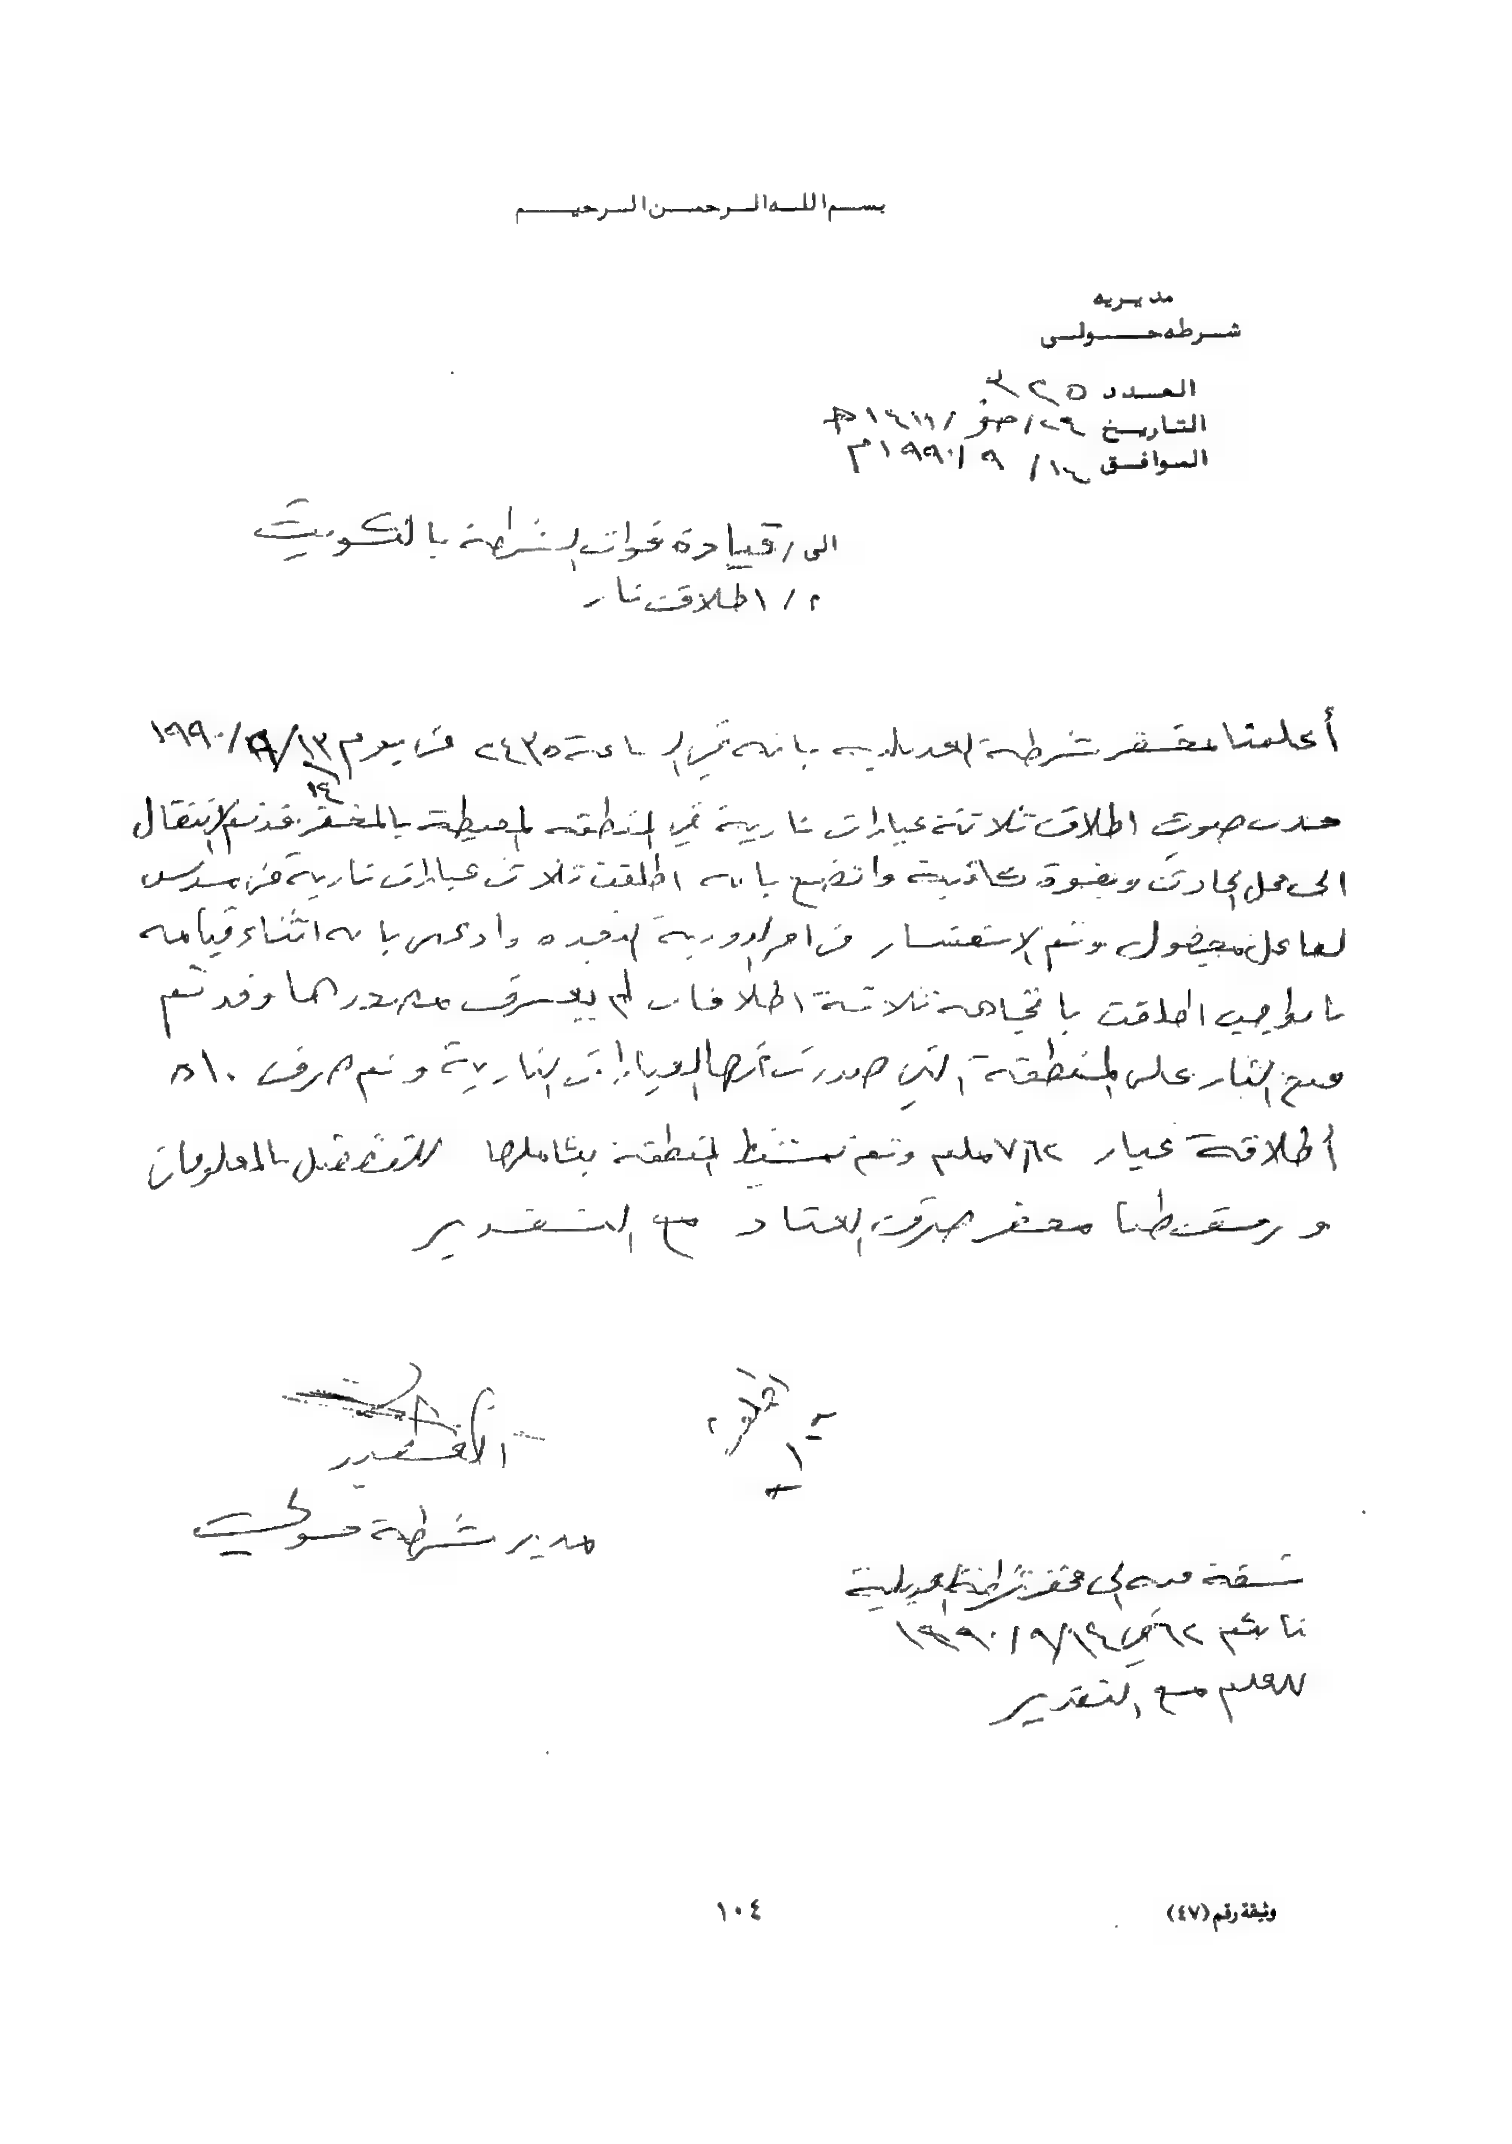 بسم الله الرحمن الرحيم
مديريه
شرطه حولي
العدد ٣٢٥
التاريخ ٢٤/صفر/١٤١١ه
الموافق ١٤/ ٩/ ١٩٩٠م
الى/ قيادة قوات الشرطة بالكويت
م/ اطلاقت نار
أعلمنا مخفر شرطة العديليه بانه في الساعة ٢٤٣٥ من يوم ١٣/٩/١٩٩٠
١٤
حدث صوت اطلاق ثلاثة عيارات نارية في المنطقه المحيطة بالمخفر فقد تم الانتقال
الى محل الحادث وبقوة كافية واتضح بانه اطلقت ثلاث عيارات نارية من مسدس
لفاعل مجهول وتم الاستفسار من امر الدورية وادعى بانه اثناء قيامه
بالواجب اطلقت باتجاهه ثلاثة اطلاقات لم يعرف مصدرها وقد تم
فتح النار على المنطقة التي صدرت منها العيارات النارية وتم صرف ٥١٠
أطلاقة عيار ٧٫٦٢ ملم وتم تمشيط المنطقة بكاملها للتفضل بالمعلومات
ومرفق طيا محضر صرف العتاد مع التقدير
مدير شرطة حولي
نسخة منه الى مخفر شرطة العديلية
للعلم مع التقدير
وثيقة رقم (٤٧)
١٠٤